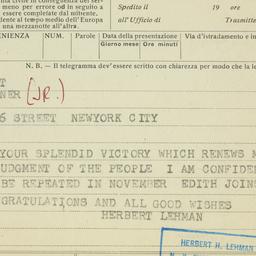 meno per errore od in seguito a
essere completate dal mittente.
dente al tempo medio dell'Europa
una mezzanotte all'altra.
Spedito il 19 ore
all'Ufficio di Trasmitte
NUM. Parole Data della presentazione Via d'istradamento e in
Giorno mese Ore minuti
N. B. — Il telegramma dev'essere scritto con chiarezza per modo che la le
T
NER (JR.)
6 STREET NEWYORK CITY
YOUR SPLENDID VICTORY WHICH RENEWS M
UDGMENT OF THE PEOPLE I AM CONFIDE
BE REPEATED IN NOVEMBER EDITH JOINS
GRATULATIONS AND ALL GOOD WISHES
HERBERT LEHMAN
HERBERT H. LEHMAN